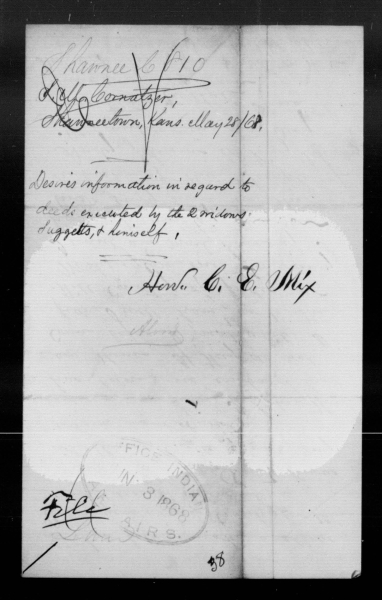 Shawnee C 810
Cornatzer,
Shawneetown, Kans. May 28/68.
Desires information in regard to
deeds executed by the 2 widows
Suggetts, & himself.
Hon. C. E. Mix
OFFICE INDIAN
JUN 3 1868
AFFAIRS.
File
38